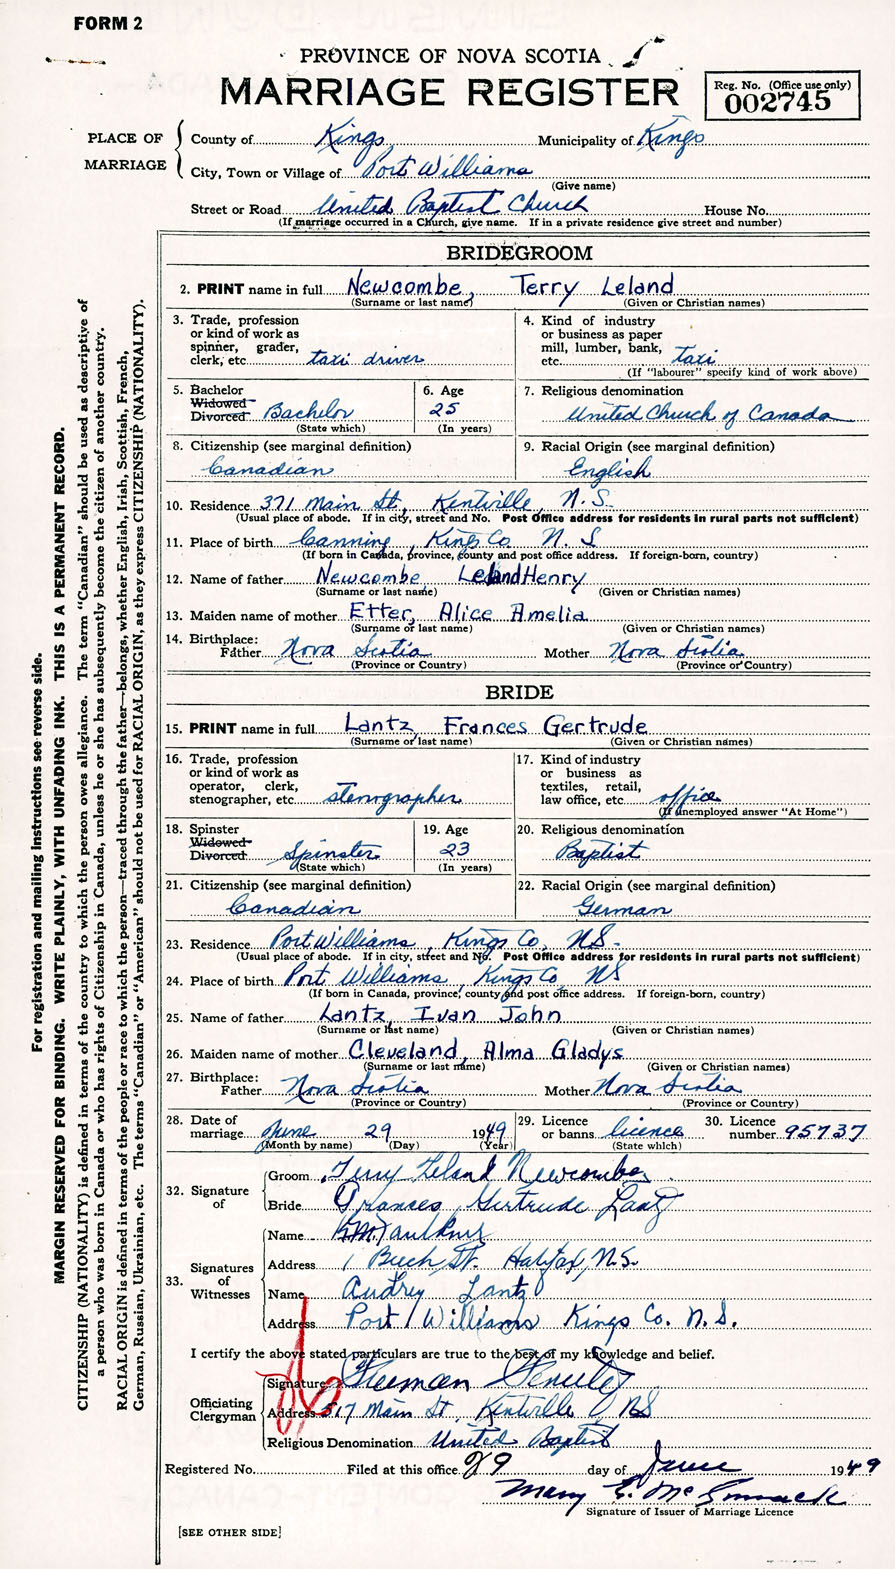 FORM 2
PROVINCE OF NOVA SCOTIA
MARRIAGE REGISTER
Reg. No. (Office use only)
002745
PLACE OF MARRIAGE
County of Kings Municipality of Kings
City, Town or Village of Port Williams
(Give name)
Street or Road United Baptist Church House No.
(If marriage occurred in a Church, give name. If in a private residence give street and number)
BRIDEGROOM
2. PRINT name in full Newcombe, Terry Leland
(Surname or last name) (Given or Christian names)
3. Trade, profession
or kind of work as
spinner, grader,
clerk, etc. taxi driver
4. Kind of industry
or business as paper
mill, lumber, bank,
etc. taxi
(If "labourer" specify kind of work above)
5. Bachelor
Widowed
Divorced Bachelor
(State which)
6. Age
25
(In years)
7. Religious denomination
United Church of Canada
8. Citizenship (see marginal definition)
Canadian
9. Racial Origin (see marginal definition)
English
10. Residence 371 Main St, Kentville, N.S.
(Usual place of abode. If in city, street and No. Post Office address for residents in rural parts not sufficient)
11. Place of birth Canning, Kings Co N.S
(If born in Canada, province, county and post office address. If foreign-born, country)
12. Name of father Newcombe Leland Henry
(Surname or last name) (Given or Christian names)
13. Maiden name of mother Etter, Alice Amelia
(Surname or last name) (Given or Christian names)
14. Birthplace:
Father Nova Scotia Mother Nova Scotia
(Province or Country) (Province or Country)
BRIDE
15. PRINT name in full Lantz, Frances Gertrude
(Surname or last name) (Given or Christian names)
16. Trade, profession
or kind of work as
operator, clerk,
stenographer, etc stenographer
17. Kind of industry
or business as
textiles, retail,
law office, etc office
(If unemployed answer "At Home")
18. Spinster
Widowed
Divorced Spinster
(State which)
19. Age
23
(In years)
20. Religious denomination
Baptist
21. Citizenship (see marginal definition)
Canadian
22. Racial Origin (see marginal definition)
German
23. Residence Port Williams, Kings Co, NS.
(Usual place of abode. If in city, street and No. Post Office address for residents in rural parts not sufficient)
24. Place of birth Port Williams, Kings Co, NS
(If born in Canada, province, county and post office address. If foreign-born, country)
25. Name of father Lantz, Ivan John
(Surname or last name) (Given or Christian names)
26. Maiden name of mother Cleveland, Alma Gladys
(Surname or last name) (Given or Christian names)
27. Birthplace:
Father Nova Scotia Mother Nova Scotia
(Province or Country) (Province or Country)
28. Date of
marriage June 29 1949
(Month by name) (Day) (Year)
29. Licence
or banns licence
(State which)
30. Licence
number 95737
32. Signature of
Groom Terry Leland Newcombe
Bride Frances Gertrude Lantz
33. Signatures of Witnesses
Name
Address 1 Beech St. Halifax, N.S.
Name Audrey Lantz
Address Port Williams Kings Co. N.S.
I certify the above stated particulars are true to the best of my knowledge and belief.
Officiating Clergyman
Signature Freeman
Address 517 Main St, Kentville, NS
Religious Denomination United Baptist
Registered No. Filed at this office 29 day of June 1949
Mary E. McCormack
Signature of Issuer of Marriage Licence
[SEE OTHER SIDE]
For registration and mailing instructions see reverse side.
MARGIN RESERVED FOR BINDING. WRITE PLAINLY, WITH UNFADING INK. THIS IS A PERMANENT RECORD.
CITIZENSHIP (NATIONALITY) is defined in terms of the country to which the person owes allegiance. The term "Canadian" should be used as descriptive of
a person who was born in Canada or who has rights of Citizenship in Canada, unless he or she has subsequently become the citizen of another country.
RACIAL ORIGIN is defined in terms of the people or race to which the person—traced through the father—belongs, whether English, Irish, Scottish, French,
German, Russian, Ukrainian, etc. The terms "Canadian" or "American" should not be used for RACIAL ORIGIN, as they express CITIZENSHIP (NATIONALITY).